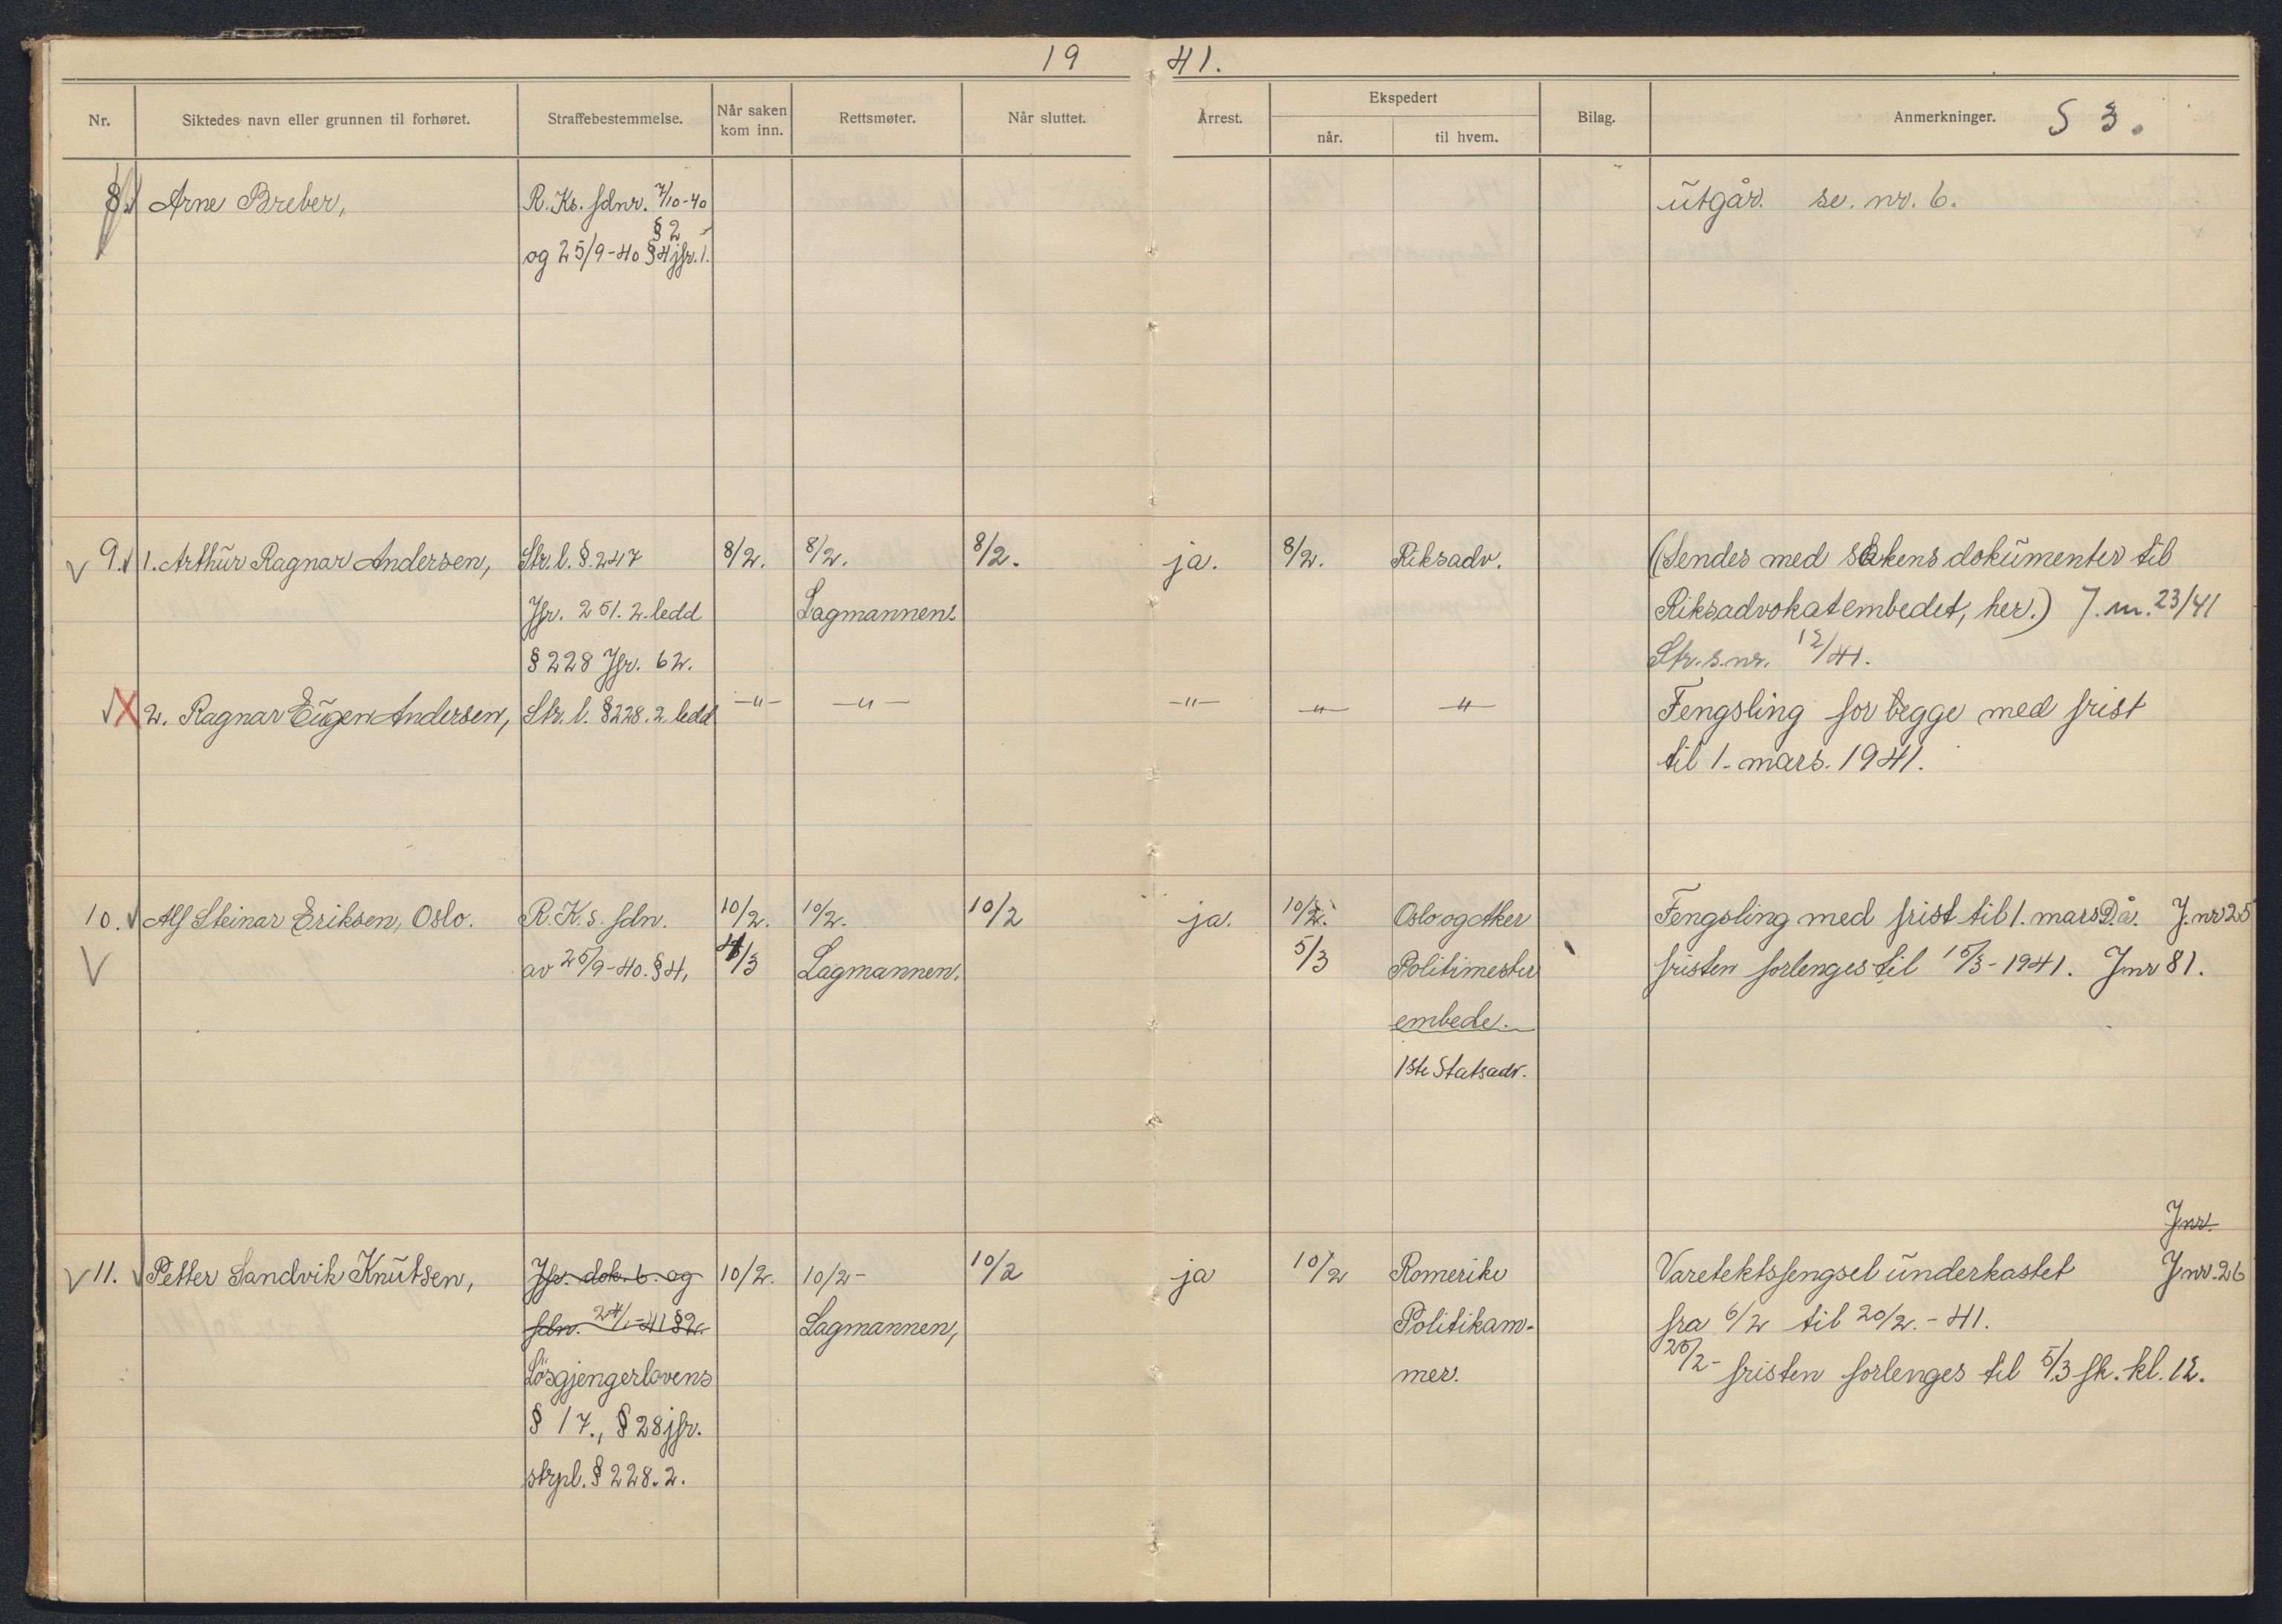 19 41.
Nr. Siktedes navn eller grunnen til forhøret. Straffebestemmelse. Når saken kom inn. Rettsmøter. Når sluttet. Arrest. Ekspedert når. til hvem. Bilag. Anmerkninger. S 3.
8. Arne Breber, R. Ks. fdnr. 7/10-40 utgår. se. nr. 6.
§ 2
og 25/9-40 § 4 jfr. 1.
9. 1. Arthur Ragnar Andersen, Str. l. §. 247 8/2. 8/2. 8/2. ja. 8/2. Riksadv. (Sendes med sakens dokumenter til
Jfr. 251. 2. ledd Lagmannens Riksadvokatembedet, her.) J. nr. 23/41
§ 228 Jfr. 62. Str. s. nr. 12/41.
2. Ragnar Eugen Andersen, Str. l. § 228. 2 ledd -"- -"- -"- -"- -"- Fengsling for begge med frist
til 1. mars. 1941.
10. Alf Steinar Eriksen, Oslo. R. K. s. fdn. 10/2. 10/2. 10/2 ja. 10/2. Oslo og Aker Fengsling med frist til 1. mars D.å. J. nr 25
av 25/9-40. § 4, 4/3 Lagmannen. 5/3 Politimester fristen forlenges til 15/3-1941. Jnr 81.
embede.
1ste Statsadv.
Jnr.
11. Petter Sandvik Knutsen, Jfr. dok. 6. og 10/2. 10/2- 10/2 ja 10/2 Romerike Varetektsfengsel underkastet Jnr. 26
fdn. 24/1-41 § 2. Lagmannen, Politikam- fra 6/2 til 20/2.-41.
Lösgjengerlovens mer. 20/2- fristen forlenges til 5/3 fk. kl. 12.
§ 17., § 28 jfr.
strpl. § 228. 2.